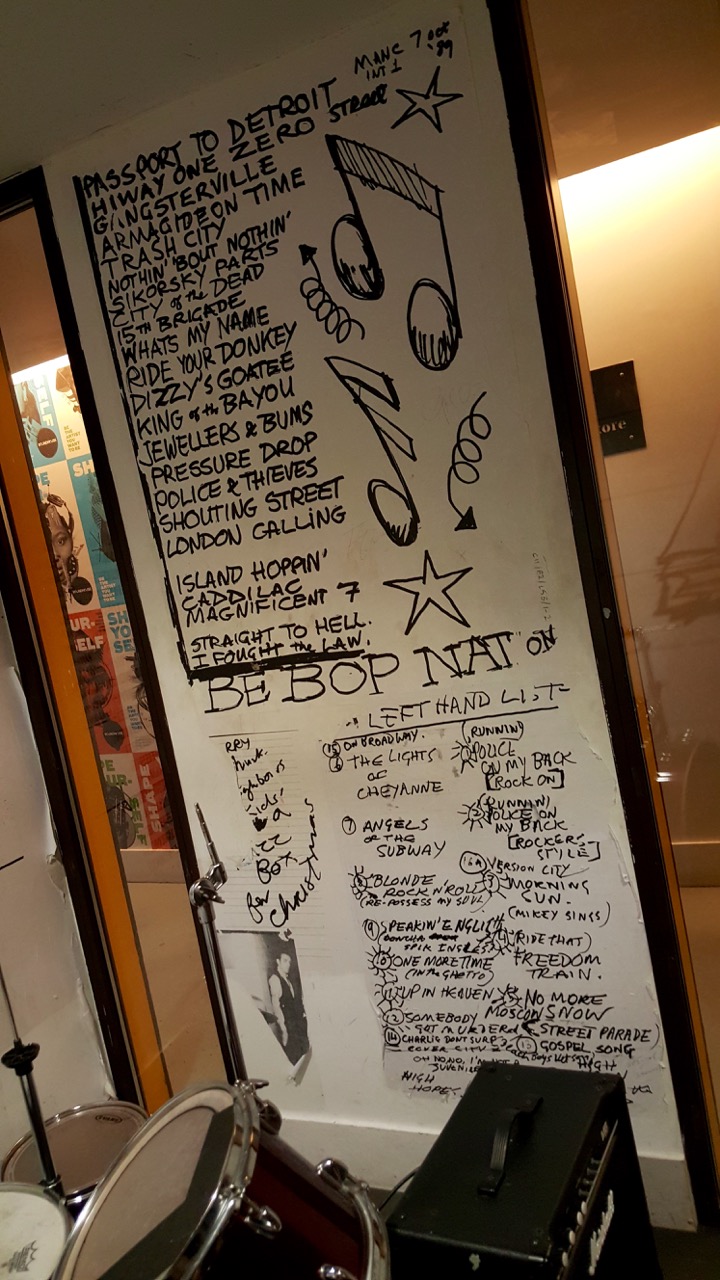 MANC 7 OCT '89
INT 1
PASSPORT TO DETROIT
HIWAY ONE ZERO STREET
GANGSTERVILLE
ARMAGIDEON TIME
TRASH CITY
NOTHIN' 'BOUT NOTHIN'
SIKORSKY PARTS
CITY of the DEAD
15TH BRIGADE
WHATS MY NAME
RIDE YOUR DONKEY
DIZZY'S GOATEE
KING of the BAYOU
JEWELLERS & BUMS
PRESSURE DROP
POLICE & THIEVES
SHOUTING STREET
LONDON CALLING
ISLAND HOPPIN'
CADDILAC
MAGNIFICENT 7
STRAIGHT TO HELL.
I FOUGHT the LAW.
BE BOP NATION
LEFT HAND LIST
15 ON BROADWAY.
6 THE LIGHTS
OF
CHEYANNE
7 ANGELS
OF THE
SUBWAY
8 BLONDE
ROCK N' ROLL
(RE-POSSESS MY SOUL)
9 SPEAKIN' ENGLISH
SPIK INGLES
10 ONE MORE TIME
(IN THE GHETTO)
11 UP IN HEAVEN
12 SOMEBODY
GOT MURDERED
14 CHARLIE DONT SURF
OH NO NO, I'M NOT A
JUVENILE
HIGH
HOPES
(RUNNIN)
1 POLICE
ON MY BACK
[ROCK ON]
2 (RUNNIN)
POLICE ON
MY BACK
[ROCKERS
STYLE]
16A VERSION CITY
3 MORNING
SUN.
(MIKEY SINGS)
4 (RIDE THAT)
FREEDOM
TRAIN.
5 NO MORE
MOSCOW SNOW
(STREET PARADE)
13 GOSPEL SONG
HIGH
RRY
BOX
for
Christmas
ore
SH
SHAPE
Marshall
REMO